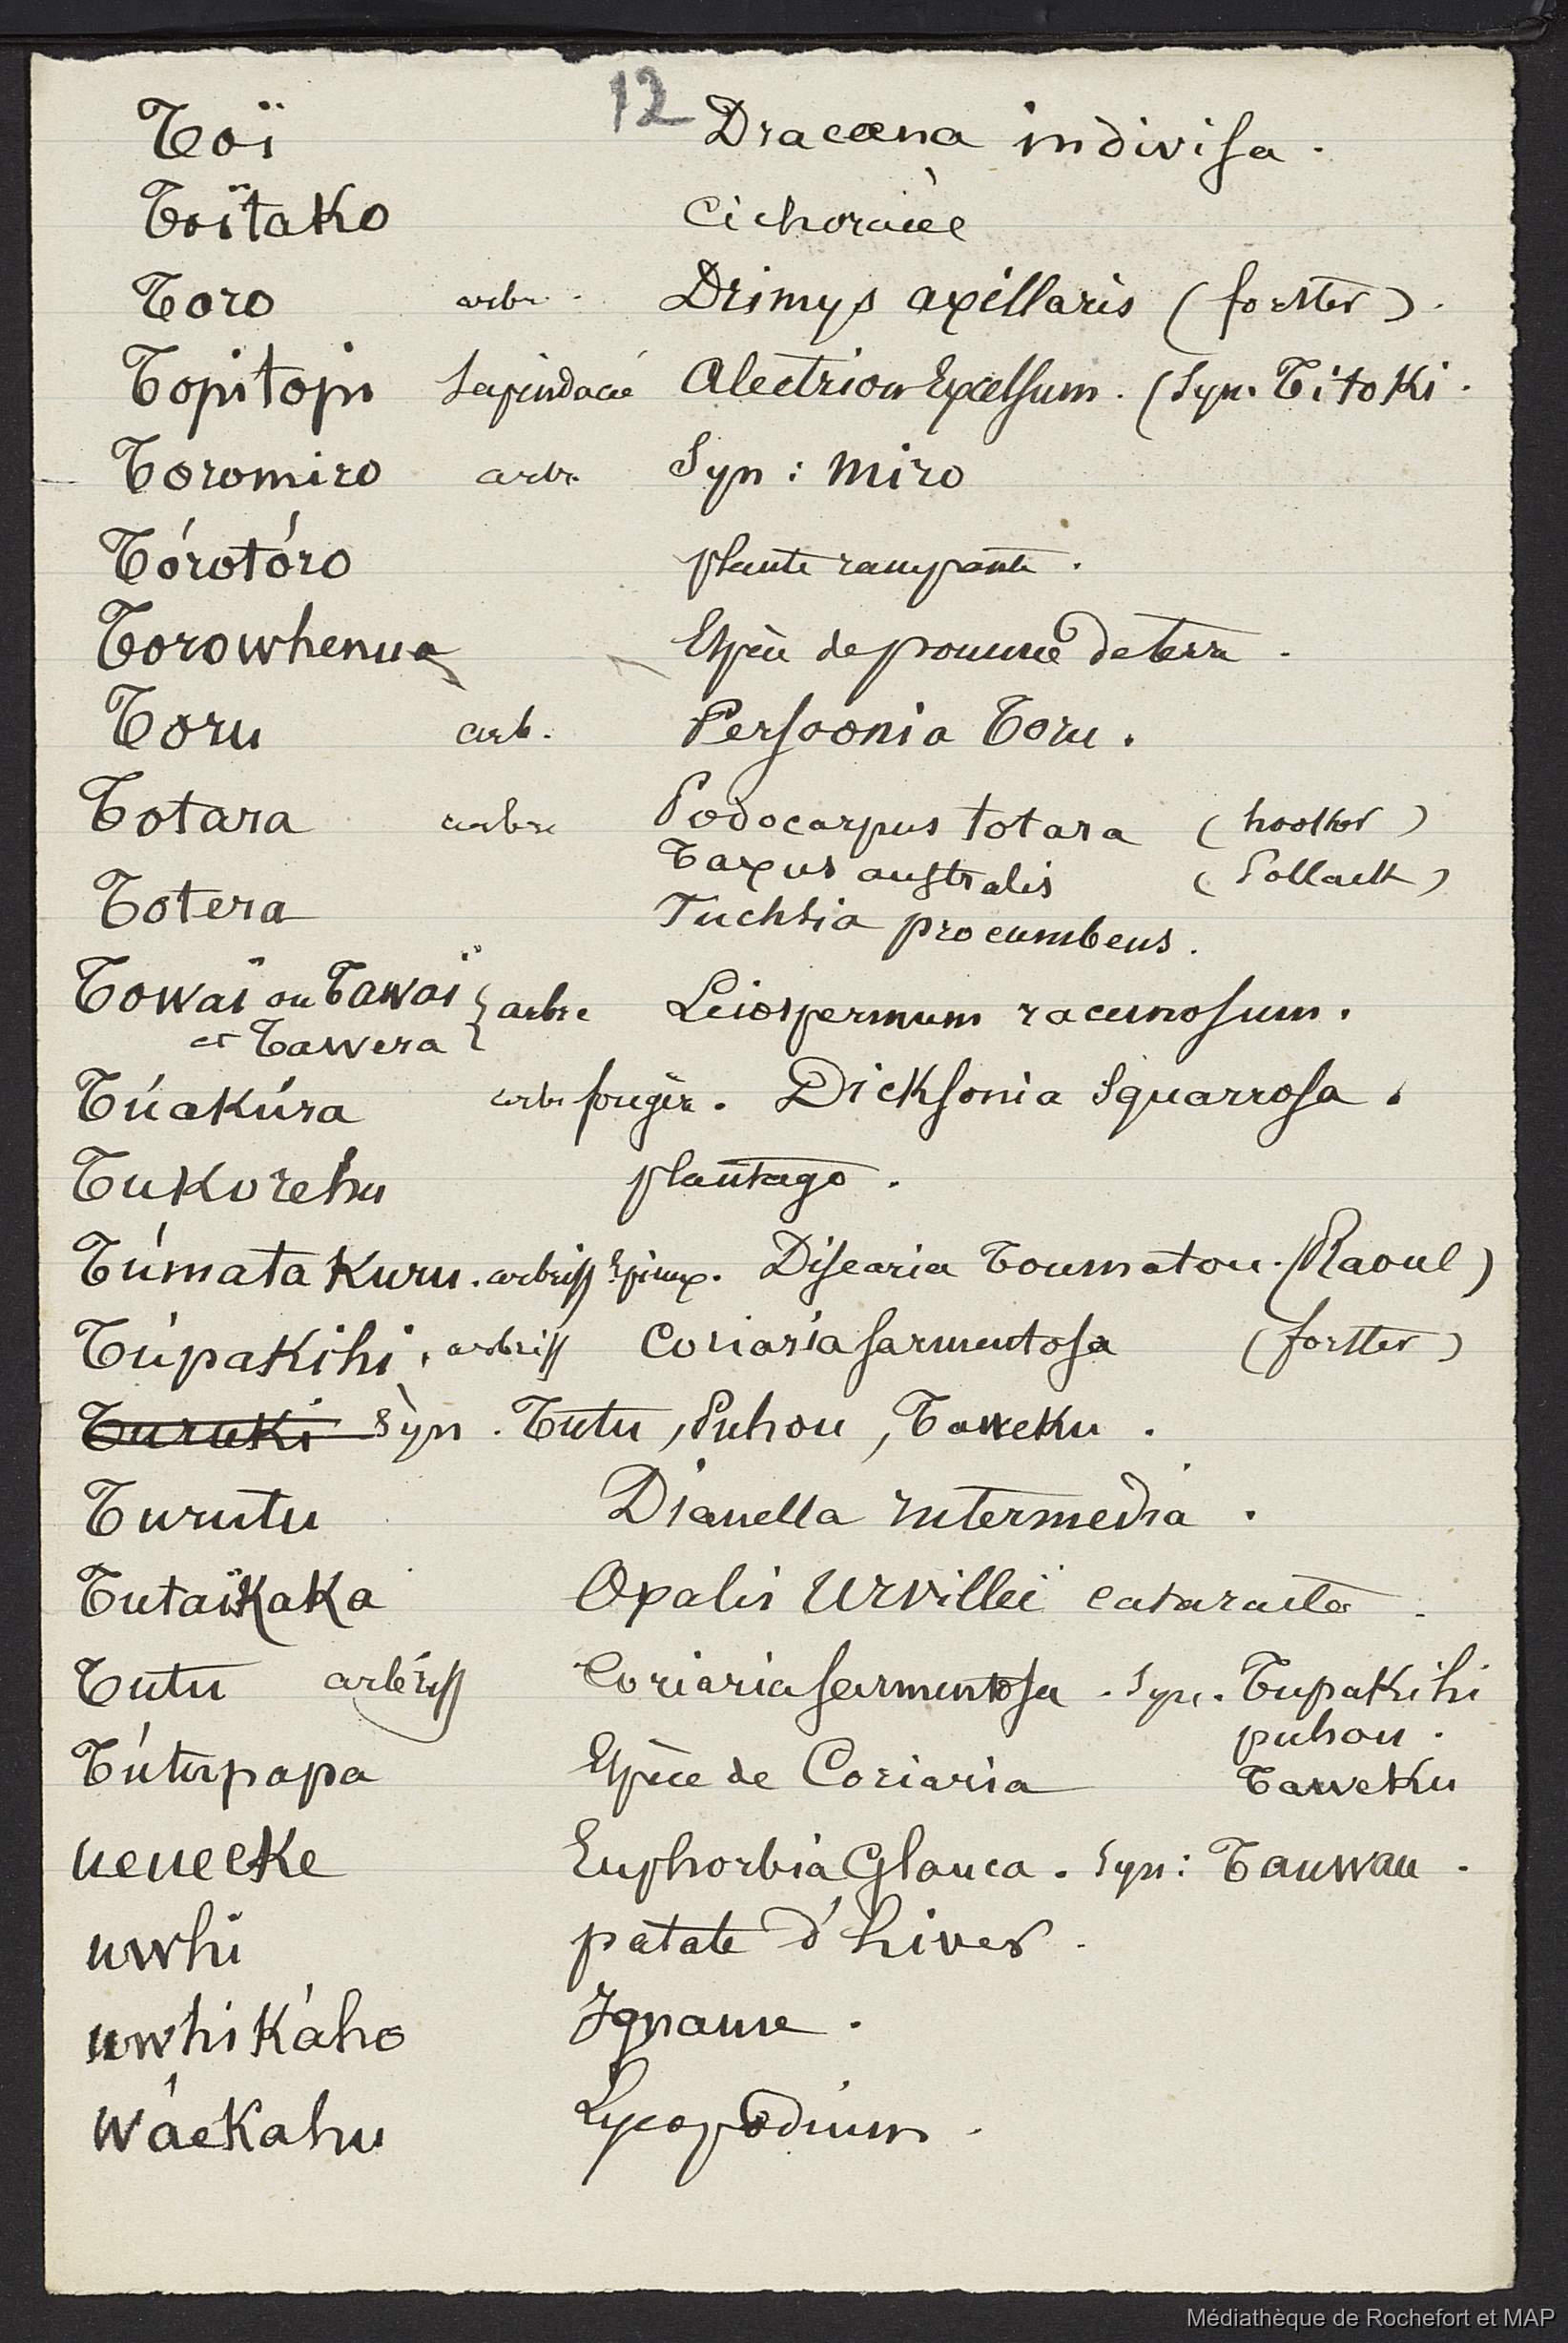 12
Toï Dracæna indivisa.
Toïtako Cichoracée
Toro arbr. Drimys axillaris (forster).
Topitopi Sapindacé Alectrion Excelsum. (Syn. Titoki.
Toromiro arbr. Syn : miro
Tórotóro plante rampante.
Torowhenua Espèce de pomme de terre.
Toru arb. Persoonia Toru.
Totara arbre Podocarpus totara (hooker)
Taxus australis (Pollack)
Totera Fuchsia procumbens.
Towaï ou Tawaï } arbre Leiospermum racemosum.
et Tawera
Túakúra arbr fougèr. Dicksonia Squarrosa.
Tukorehu plantago.
Túmatakuru. arbriss Epineux. Discaria Toumatou. (Raoul)
Túpakihi, arbriss Coriaria sarmentosa (forster)
Turuki Syn. Tutu, Puhou, Taweku.
Turutu Dianella intermedia.
Tutaïkaka Oxalis Urvillei cataractæ.
Tutu arbriss Coriaria sarmentosa. Syn. Tupakihi
puhou.
Tútupapa Espèce de Coriaria Taweku
ueueeke Euphorbia Glauca. Syn : Tauwau.
uwhi patate d'hiver.
uwhikáho Igname.
Wáekahu Lycopodium.
Médiathèque de Rochefort et MAP